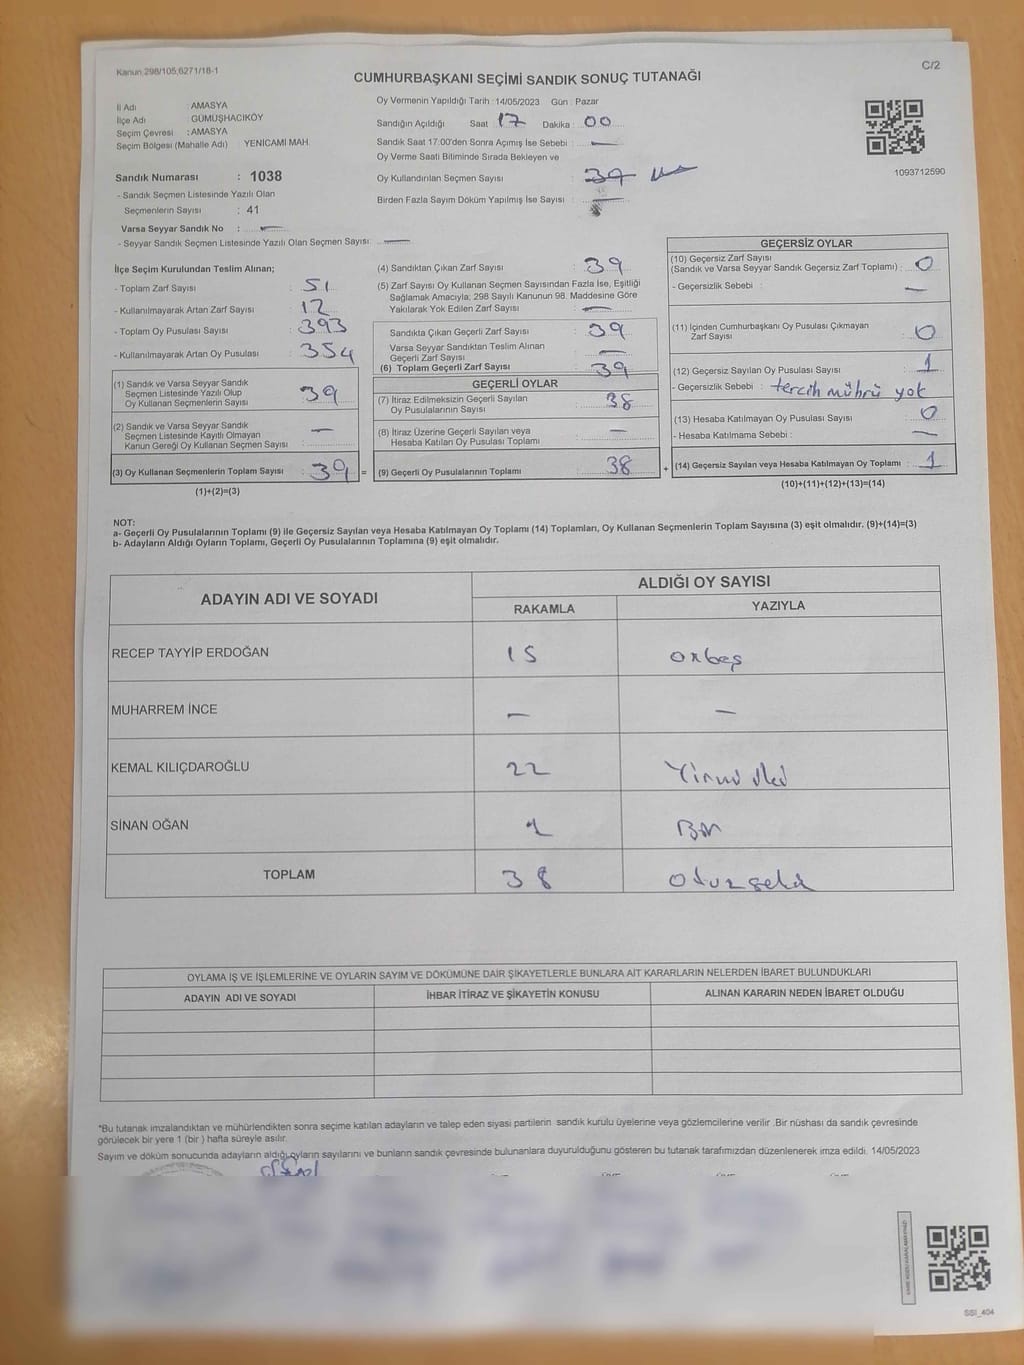 Kanun 298/105,6271/18-1
C/2
CUMHURBAŞKANI SEÇİMİ SANDIK SONUÇ TUTANAĞI
İl Adı : AMASYA
İlçe Adı : GÜMÜŞHACIKÖY
Seçim Çevresi : AMASYA
Seçim Bölgesi (Mahalle Adı) YENİCAMİ MAH.
Sandık Numarası : 1038
- Sandık Seçmen Listesinde Yazılı Olan
Seçmenlerin Sayısı : 41
Varsa Seyyar Sandık No : —
- Seyyar Sandık Seçmen Listesinde Yazılı Olan Seçmen Sayısı: —
Oy Vermenin Yapıldığı Tarih : 14/05/2023 Gün : Pazar
Sandığın Açıldığı Saat : 17 Dakika : 00
Sandık Saat 17:00'den Sonra Açımış İse Sebebi : —
Oy Verme Saati Bitiminde Sırada Bekleyen ve
Oy Kullandırılan Seçmen Sayısı :
Birden Fazla Sayım Döküm Yapılmış İse Sayısı :
1093712590
İlçe Seçim Kurulundan Teslim Alınan;
- Toplam Zarf Sayısı : 51
- Kullanılmayarak Artan Zarf Sayısı : 12
- Toplam Oy Pusulası Sayısı : 393
- Kullanılmayarak Artan Oy Pusulası : 354
(1) Sandık ve Varsa Seyyar Sandık
Seçmen Listesinde Yazılı Olup
Oy Kullanan Seçmenlerin Sayısı : 39
(2) Sandık ve Varsa Seyyar Sandık
Seçmen Listesinde Kayıtlı Olmayan
Kanun Gereği Oy Kullanan Seçmen Sayısı : —
(3) Oy Kullanan Seçmenlerin Toplam Sayısı : 39 =
(1)+(2)=(3)
(4) Sandıktan Çıkan Zarf Sayısı : 39
(5) Zarf Sayısı Oy Kullanan Seçmen Sayısından Fazla İse, Eşitliği
Sağlamak Amacıyla; 298 Sayılı Kanunun 98. Maddesine Göre
Yakılarak Yok Edilen Zarf Sayısı : —
Sandıkta Çıkan Geçerli Zarf Sayısı : 39
Varsa Seyyar Sandıktan Teslim Alınan
Geçerli Zarf Sayısı : —
(6) Toplam Geçerli Zarf Sayısı : 39
GEÇERLİ OYLAR
(7) İtiraz Edilmeksizin Geçerli Sayılan
Oy Pusulalarının Sayısı : 38
(8) İtiraz Üzerine Geçerli Sayılan veya
Hesaba Katılan Oy Pusulası Toplamı : —
(9) Geçerli Oy Pusulalarının Toplamı : 38 +
GEÇERSİZ OYLAR
(10) Geçersiz Zarf Sayısı
(Sandık ve Varsa Seyyar Sandık Geçersiz Zarf Toplamı) : 0
- Geçersizlik Sebebi : —
(11) İçinden Cumhurbaşkanı Oy Pusulası Çıkmayan
Zarf Sayısı : 0
(12) Geçersiz Sayılan Oy Pusulası Sayısı : 1
- Geçersizlik Sebebi : tercih mührü yok
(13) Hesaba Katılmayan Oy Pusulası Sayısı : 0
- Hesaba Katılmama Sebebi : —
(14) Geçersiz Sayılan veya Hesaba Katılmayan Oy Toplamı : 1
(10)+(11)+(12)+(13)=(14)
NOT:
a- Geçerli Oy Pusulalarının Toplamı (9) ile Geçersiz Sayılan veya Hesaba Katılmayan Oy Toplamı (14) Toplamları, Oy Kullanan Seçmenlerin Toplam Sayısına (3) eşit olmalıdır. (9)+(14)=(3)
b- Adayların Aldığı Oyların Toplamı, Geçerli Oy Pusulalarının Toplamına (9) eşit olmalıdır.
ADAYIN ADI VE SOYADI
ALDIĞI OY SAYISI
RAKAMLA YAZIYLA
RECEP TAYYİP ERDOĞAN 15 onbeş
MUHARREM İNCE — —
KEMAL KILIÇDAROĞLU 22 Yirmi iki
SİNAN OĞAN 1 Bir
TOPLAM 38 otuzsekiz
OYLAMA İŞ VE İŞLEMLERİNE VE OYLARIN SAYIM VE DÖKÜMÜNE DAİR ŞİKAYETLERLE BUNLARA AİT KARARLARIN NELERDEN İBARET BULUNDUKLARI
ADAYIN ADI VE SOYADI İHBAR İTİRAZ VE ŞİKAYETİN KONUSU ALINAN KARARIN NEDEN İBARET OLDUĞU
*Bu tutanak imzalandıktan ve mühürlendikten sonra seçime katılan adayların ve talep eden siyasi partilerin sandık kurulu üyelerine veya gözlemcilerine verilir .Bir nüshası da sandık çevresinde
görülecek bir yere 1 (bir ) hafta süreyle asılır.
Sayım ve döküm sonucunda adayların aldığı oyların sayılarını ve bunların sandık çevresinde bulunanlara duyurulduğunu gösteren bu tutanak tarafımızdan düzenlenerek imza edildi. 14/05/2023
SSI_404